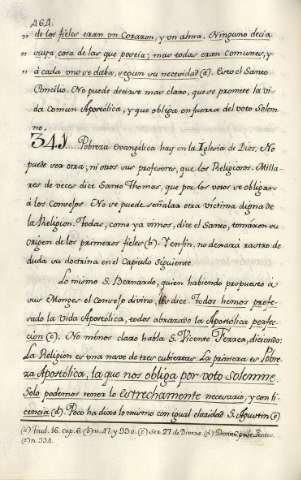 262.
" de los fieles eran un Corazon, y un alma. Ninguno decia
" suya cosa de las que poseía; mas todas eran Comunes, y
" á cada uno se daba, segun su necesidad (a). Esto el Santo
Concilio. No puede decirse mas claro, que se promete la vi-
da Comun Apostólica, y que obliga en fuerza del voto Solem-
ne.
341. Pobreza Evangélica hay en la Iglesia de Dios. No
puede ser otra; ni otros sus profesores, que los Religiosos. Milla-
res de veces dice Santo Thomas, que por los votos se obligan
á los Consejos. No se puede señalar otra victima digna de
la Religion. Todas, como ya vimos, dice el Santo, tomaron su
origen de los primeros fieles (b). Y en fin, no dexará rastro de
duda su doctrina en el Capitulo siguiente.
Lo mismo S. Bernardo, quien habiendo propuesto á
sus Monges el Consejo divino, les dice: Todos hemos profe-
sado la Vida Apostólica, todos abrazado la Apostólica perfec-
cion (c). No menos claro habla S. Vicente Ferrer, diciendo:
La Religion es una nave de tres cubiertas. La primera es Pobre-
za Apostólica, la que nos obliga por voto solemne.
Solo podemos tener lo estrechamente necesario, y con li-
cencia (d). Poco ha dixo lo mismo con igual claridad S. Agustin (e)
(a) Aud. 16. cap. 6. (b) n. 27. y 330. (c) Ser. 27 de Divers. (d)
(e) n. 332.